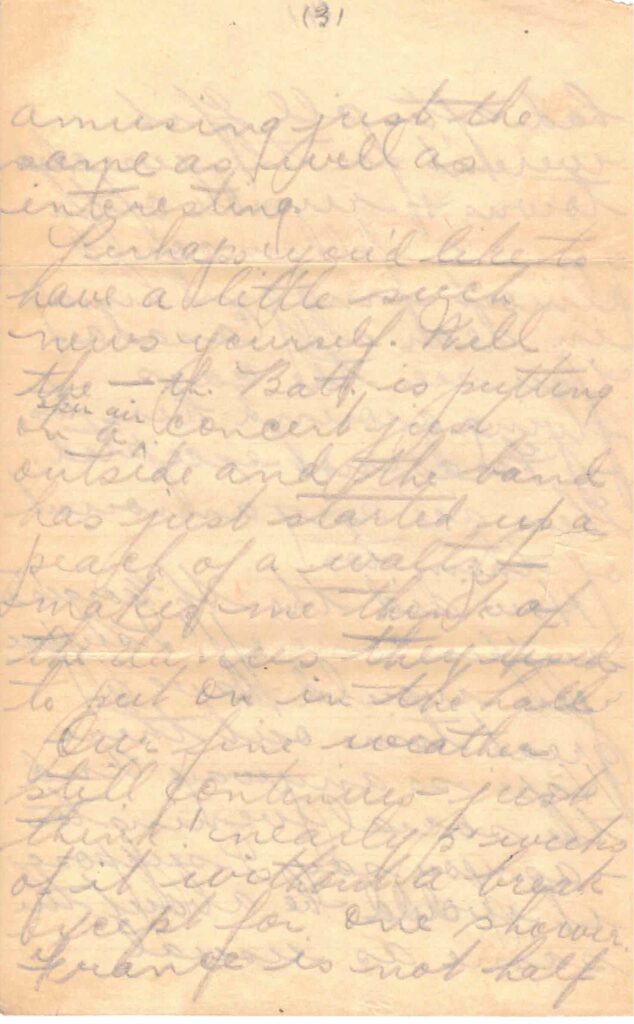 (3)
amusing just the
same as well as
interesting.
Perhaps you'd like to
have a little such
news yourself. Well
the —th. Batt. is putting
open air
on a concert just
outside and the band
has just started up a
peach of a waltz —
makes me think of
the dances they used
to put on in the hall
Our fine weather
still continues — just
think nearly 5 weeks
of it without a break
except for one shower.
France is not half